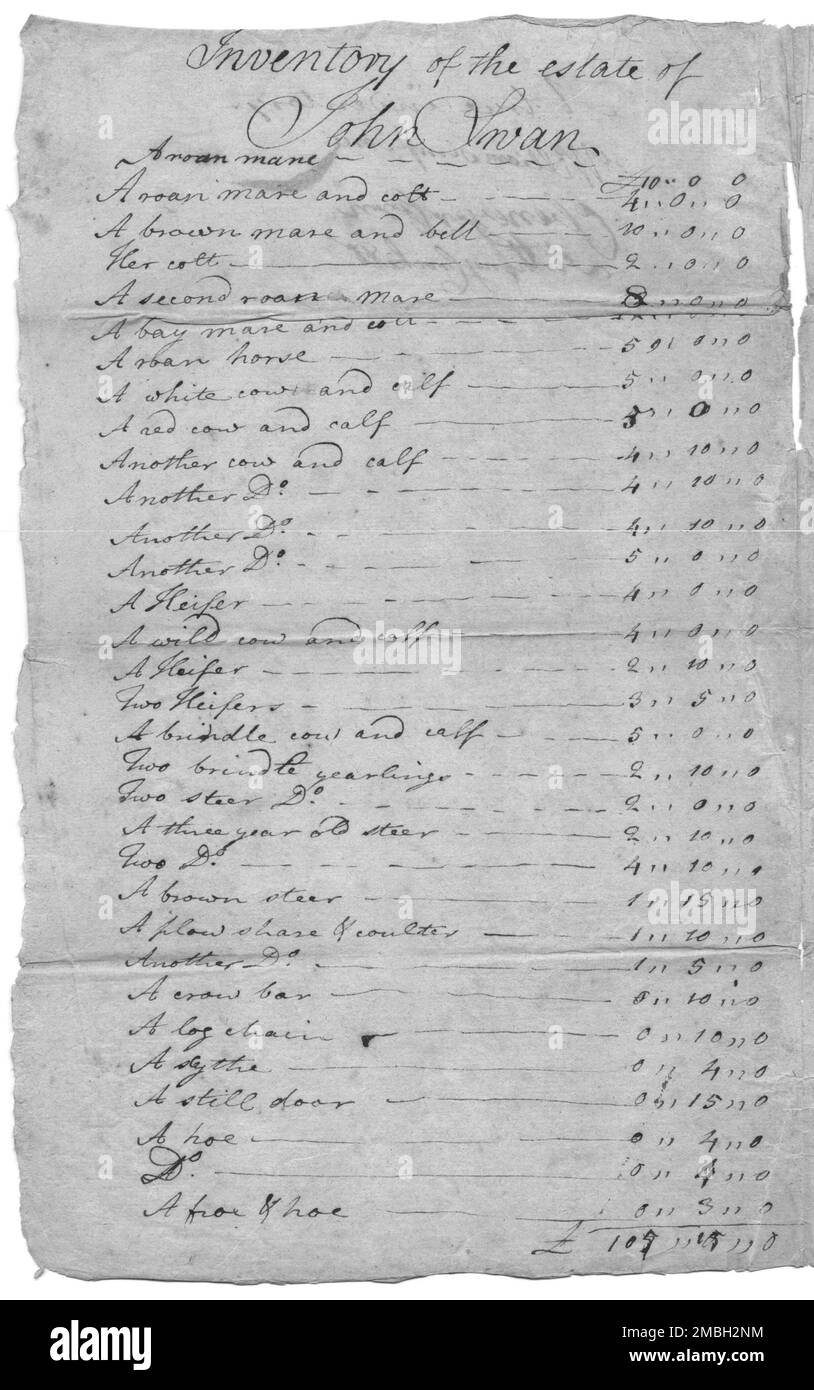 Inventory of the estate of
John Swan
A roan mare £10 ,, 0 0
A roan mare and colt 4 ,, 0 ,, 0
A brown mare and bell 10 ,, 0 ,, 0
Her colt 2 ,, 0 ,, 0
A second roan mare 8 ,, 0 ,, 0
A bay mare and colt
A roan horse 5 0 ,, 0
A white cow and calf 5 ,, 0 ,, 0
A red cow and calf 5 ,, 0 ,, 0
Another cow and calf 4 ,, 10 ,, 0
Another Do. 4 ,, 10 ,, 0
Another Do. 4 ,, 10 ,, 0
Another Do. 5 ,, 0 ,, 0
A Heifer 4 ,, 0 ,, 0
A wild cow and calf 4 ,, 0 ,, 0
A Heifer 2 ,, 10 ,, 0
Two Heifers 3 ,, 5 ,, 0
A brindle cow and calf 5 ,, 0 ,, 0
Two brindle yearlings 2 ,, 10 ,, 0
Two steer Do. 2 ,, 0 ,, 0
A three year old steer 2 ,, 10 ,, 0
Two Do. 4 ,, 10 ,, 0
A brown steer 1 ,, 15 ,, 0
A plow share & coulter 1 ,, 10 ,, 0
Another Do. 1 ,, 5 ,, 0
A crow bar 0 ,, 10 ,, 0
A log chain 0 ,, 10 ,, 0
A sythe 0 ,, 4 ,, 0
A still door 0 ,, 15 ,, 0
A hoe 0 ,, 4 ,, 0
Do. 0 ,, 4 ,, 0
A froe & hoe 0 ,, 3 ,, 0
£ 105 ,, 15 ,, 0
alamy
Image ID: 2MBH2NM
www.alamy.com